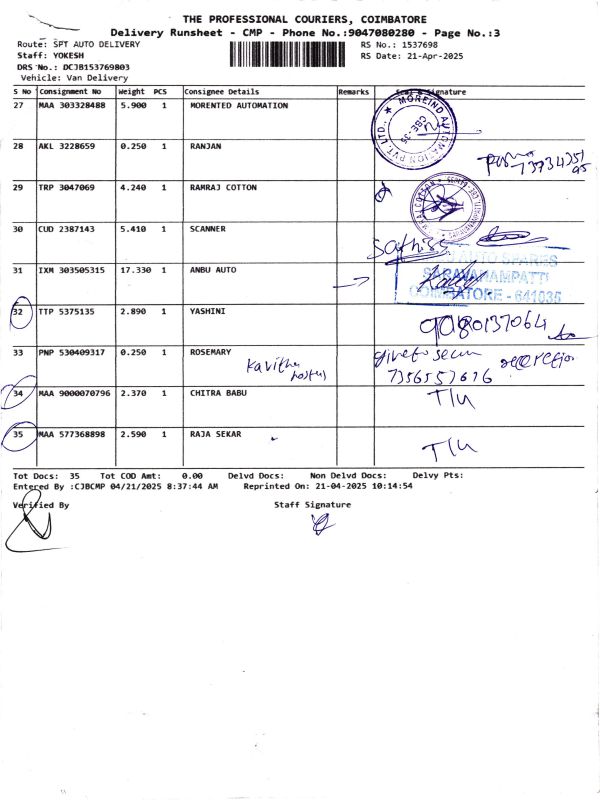 THE PROFESSIONAL COURIERS, COIMBATORE
Delivery Runsheet - CMP - Phone No.:9047080280 - Page No.:3
Route: SPT AUTO DELIVERY
RS No.: 1537698
Staff: YOKESH
RS Date: 21-Apr-2025
DRS No.: DCJB153769803
Vehicle: Van Delivery
S No Consignment No Weight PCS Consignee Details Remarks Seal & Signature
27 MAA 303328488 5.900 1 MORENTED AUTOMATION
MOREIND AUTOMATION PVT. LTD.,
CBE-35
28 AKL 3228659 0.250 1 RANJAN
29 TRP 3047069 4.240 1 RAMRAJ COTTON
30 CUD 2387143 5.410 1 SCANNER
31 IXM 303505315 17.330 1 ANBU AUTO
AUTO SPARES
SARAVANAMPATTI
COIMBATORE - 641035
32 TTP 5375135 2.890 1 YASHINI
9080137064
33 PNP 530409317 0.250 1 ROSEMARY
Kavitha
hostel
7356557676
34 MAA 9000070796 2.370 1 CHITRA BABU T/U
35 MAA 577368898 2.590 1 RAJA SEKAR T/U
Tot Docs: 35 Tot COD Amt: 0.00 Delvd Docs: Non Delvd Docs: Delvy Pts:
Entered By :CJBCMP 04/21/2025 8:37:44 AM Reprinted On: 21-04-2025 10:14:54
Verified By Staff Signature